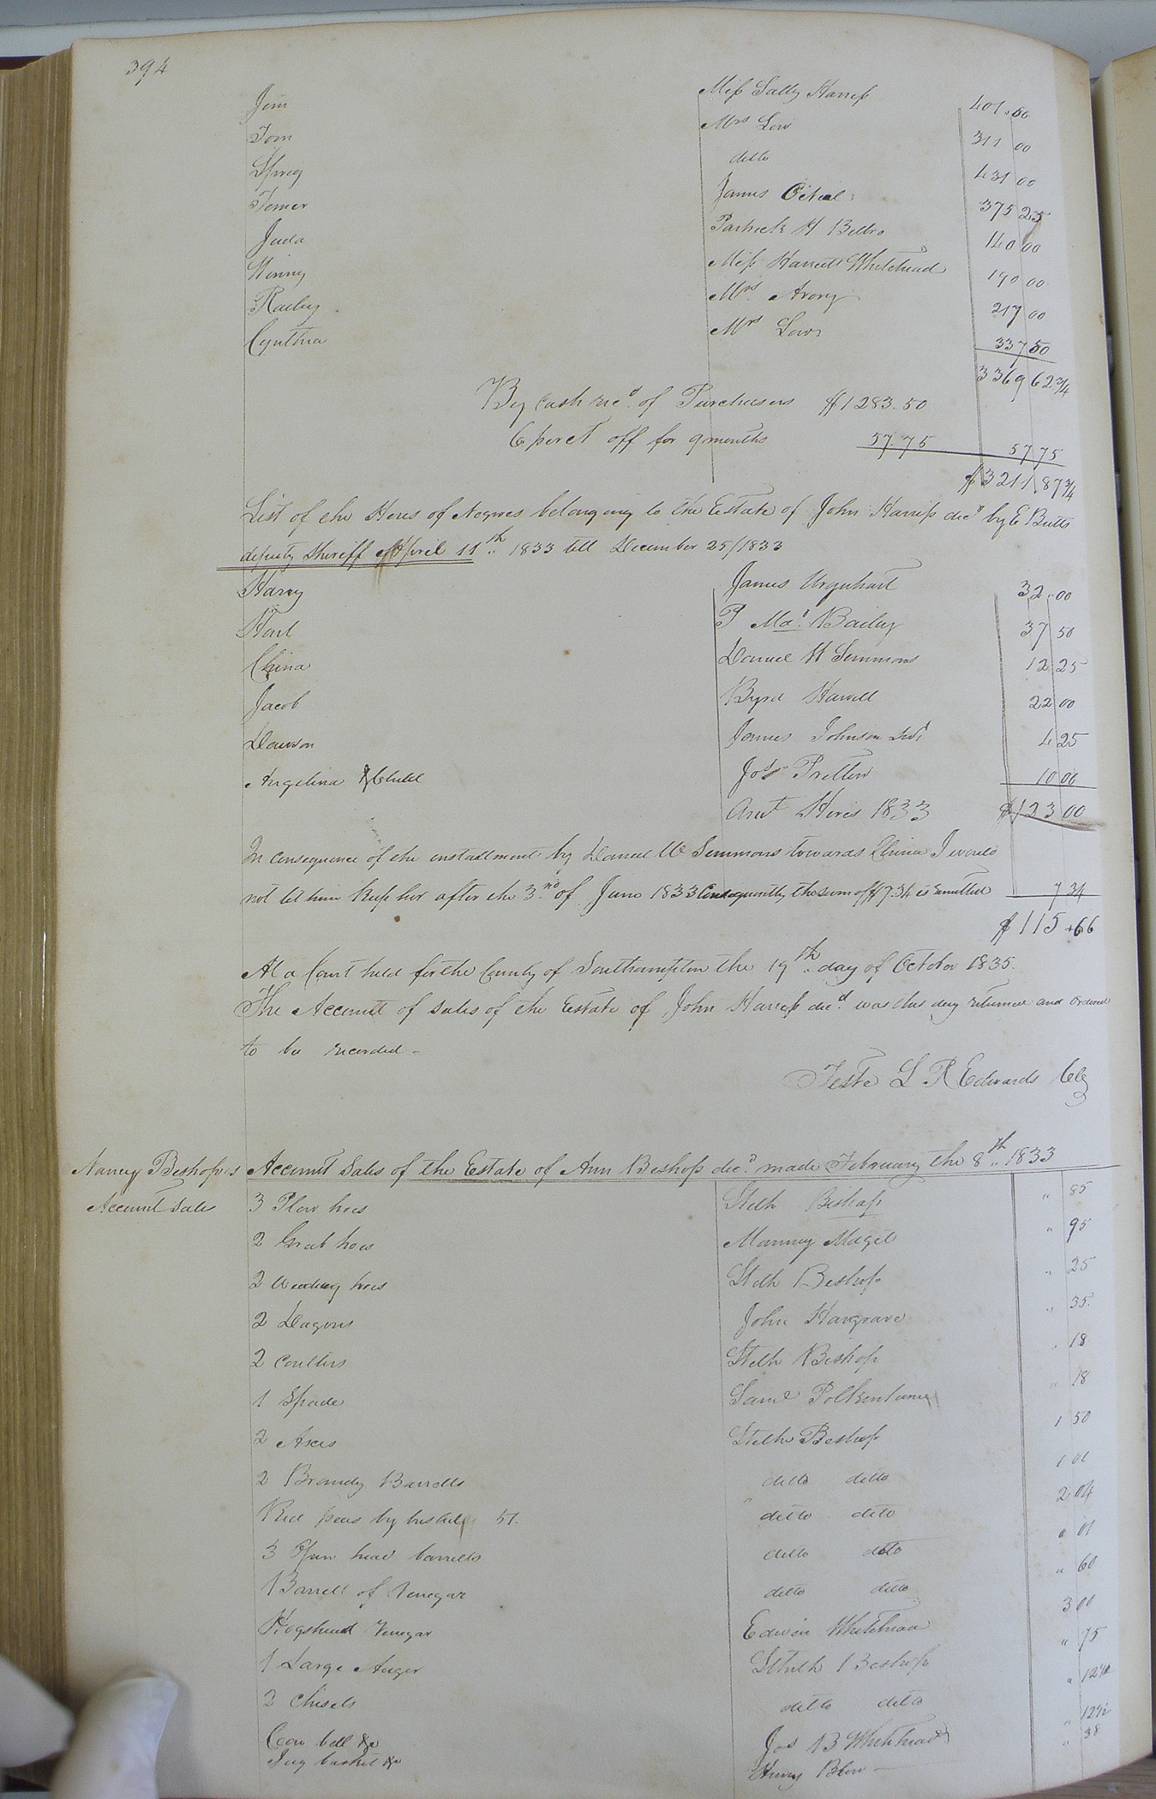 394
Jim Miss Sally Harriss 401.50
Tom Mrs Low 311 00
Spring ditto 431 00
Tomer James 375 25
Juda H Betts 140 00
Winny Miss Harriett Whitehead 190 00
Railey Mrs Avory 217 00
Cynthia Mrs Low 337 50
3369 62 3/4
By Cash recd. of Purchasers $1283.50
6 perct off for 9 months 57.75 57 75
$3211 87 3/4
List of the Hires of Negroes belonging to the Estate of John Harriss decd by E Butts
deputy Sheriff April 11th 1833 till December 25/1833
Harry James Urquhart 32.00
Harl P Mat Bailey 37 50
China Daniel W Simmons 12 25
Jacob Byrd Harrell 22 00
Dawson James Johnson 4 25
Angelina & Child Jos Pretlow 10 00
Amt Hires 1833 $123 00
In consequence of the enstallment by Daniel W Simmons towards China I would
not let him keep her after the 3rd of June 1833 Consequently the sum of $7.34 is remitted 7 34
$115.66
At a Court held for the County of Southampton the 19th day of October 1835.
The Account of sales of the Estate of John Harriss decd. was this day returned and ordered
to be recorded -
Teste L R Edwards Clk
Nancy Bishop's Account Sales of the Estate of Ann Bishop decd. made February the 8th 1833
Account Sales
3 Plow hoes Steth Bishop " 85
2 Grub hoes Manney Magee " 95
2 Weeding hoes Steth Bishop " 25
2 Dagons John Hargrave " 35
2 Coulters Steth Bishop " 18
1 Spade Saml " 18
2 Axes Steth Bishop 1 50
2 Brandy Barrells ditto ditto 1 01
Red peas by bushel 51. ditto ditto 2 04
3 head barrells ditto ditto " 01
1 Barrell of Vinegar ditto ditto " 60
Hogshead Vinegar Edwin Whitehead 3 00
1 Large Auger Steth Bishop " 75
2 Chisels ditto ditto " 12 1/2
Cow bell &c Jos B Whitehead " 12 1/2
Jug basket &c Henry Blow " 38